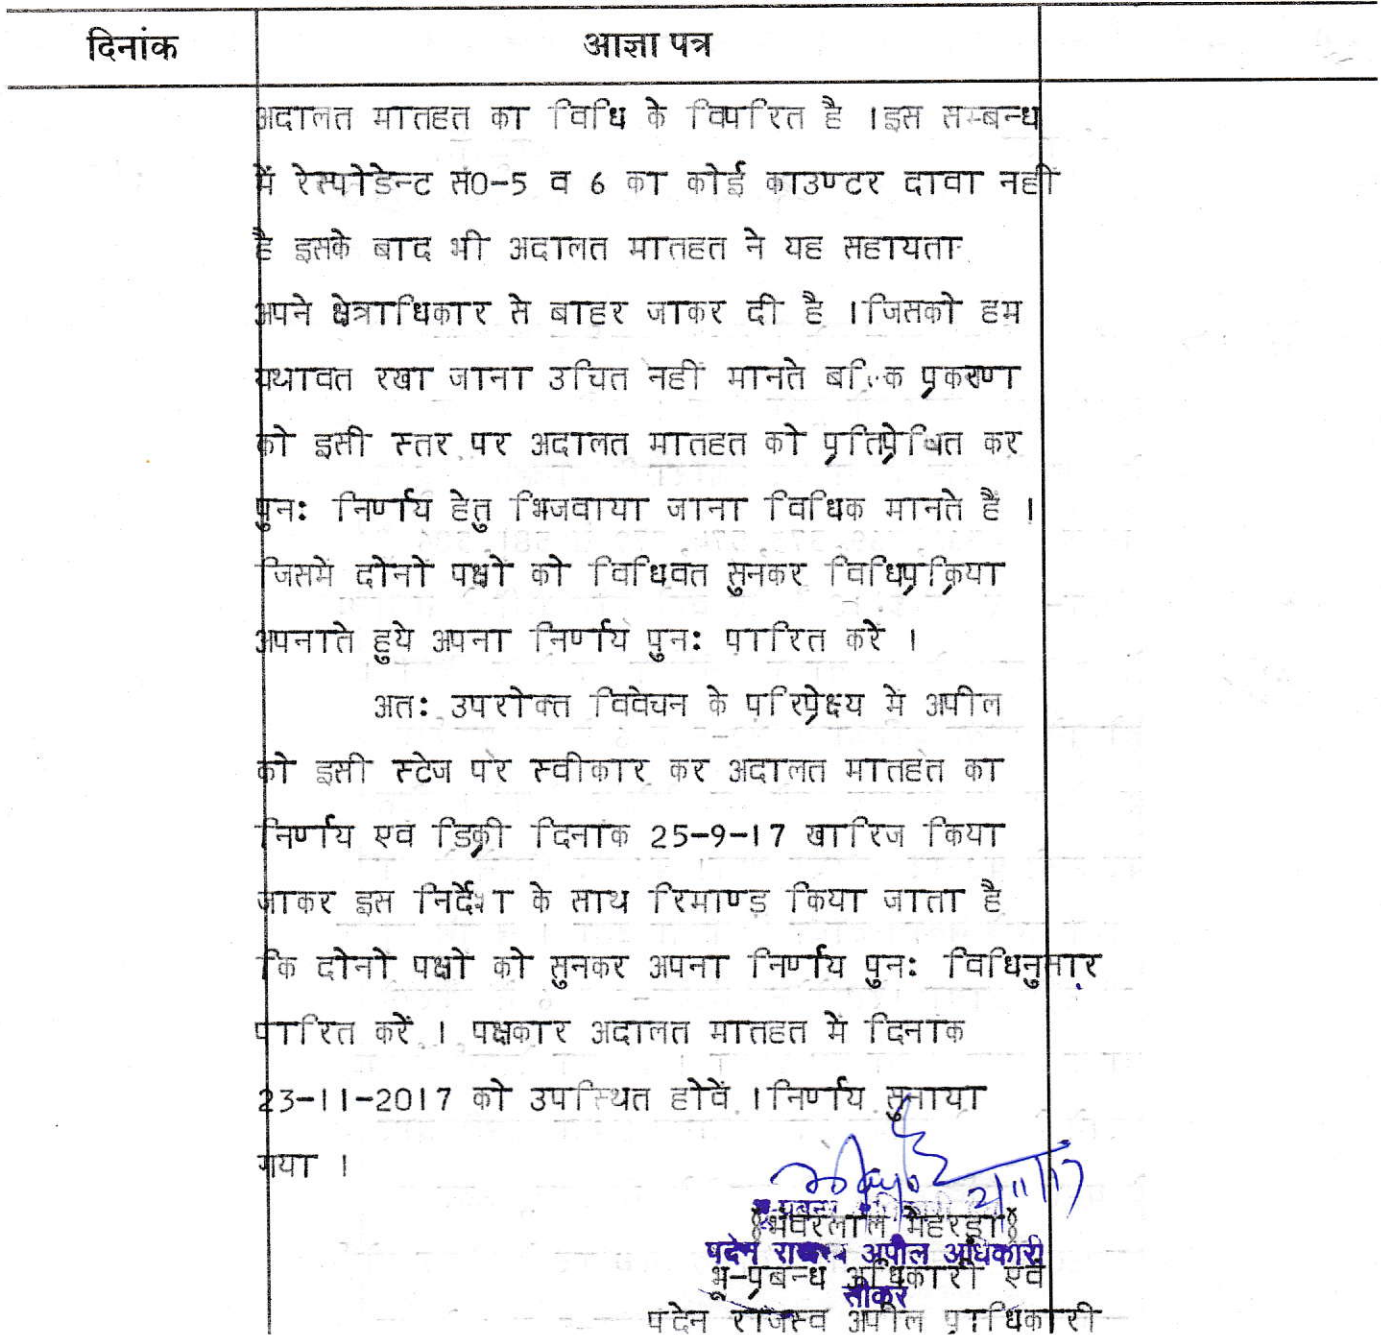 दिनांक
आज्ञा पत्र
अदालत मातहत का विधि के विपरित है ।इस सम्बन्ध
में रेस्पोडेन्ट सं0-5 व 6 का कोई काउण्टर दावा नहीं
है इसके बाद भी अदालत मातहत ने यह सहायता
अपने क्षेत्राधिकार से बाहर जाकर दी है ।जिसको हम
यथावत रखा जाना उचित नहीं मानते बल्कि प्रकरण
को इसी स्तर पर अदालत मातहत को प्रतिप्रेषित कर
पुन: निर्णाय हेतु भिजवाया जाना विधिक मानते हैं ।
जिसमें दोनों पक्षों को विधिवत सुनकर विधिप्रक्रिया
अपनाते हुये अपना निर्णाय पुन: पारित करे ।
अत: उपरोक्त विवेचन के परिप्रेक्ष्य में अपील
को इसी स्टेज पर स्वीकार कर अदालत मातहत का
निर्णाय एवं डिक्री दिनांक 25-9-17 खारिज किया
जाकर इस निर्देश के साथ रिमाण्ड किया जाता है
कि दोनों पक्षों को सुनकर अपना निर्णाय पुन: विधिनुसार
पारित करें । पक्षकार अदालत मातहत में दिनांक
23-11-2017 को उपस्थित होवें ।निर्णाय सुनाया
गया ।
2/11/17
भंवरलाल मेहरड़ा
पदेन राजस्व अपील अधिकारी
भू-प्रबन्ध अधिकारी एवं
सीकर
पदेन राजस्व अपील प्राधिकारी